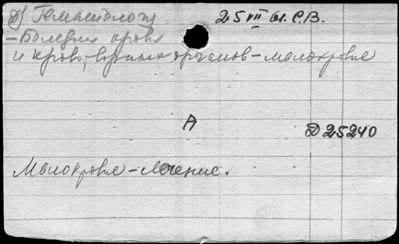 д) Гематология 25 VII 61. С.В.
- Болезни крови
и кровотворных органов - малокровие
А
D 25240
Малокровие - лечение.